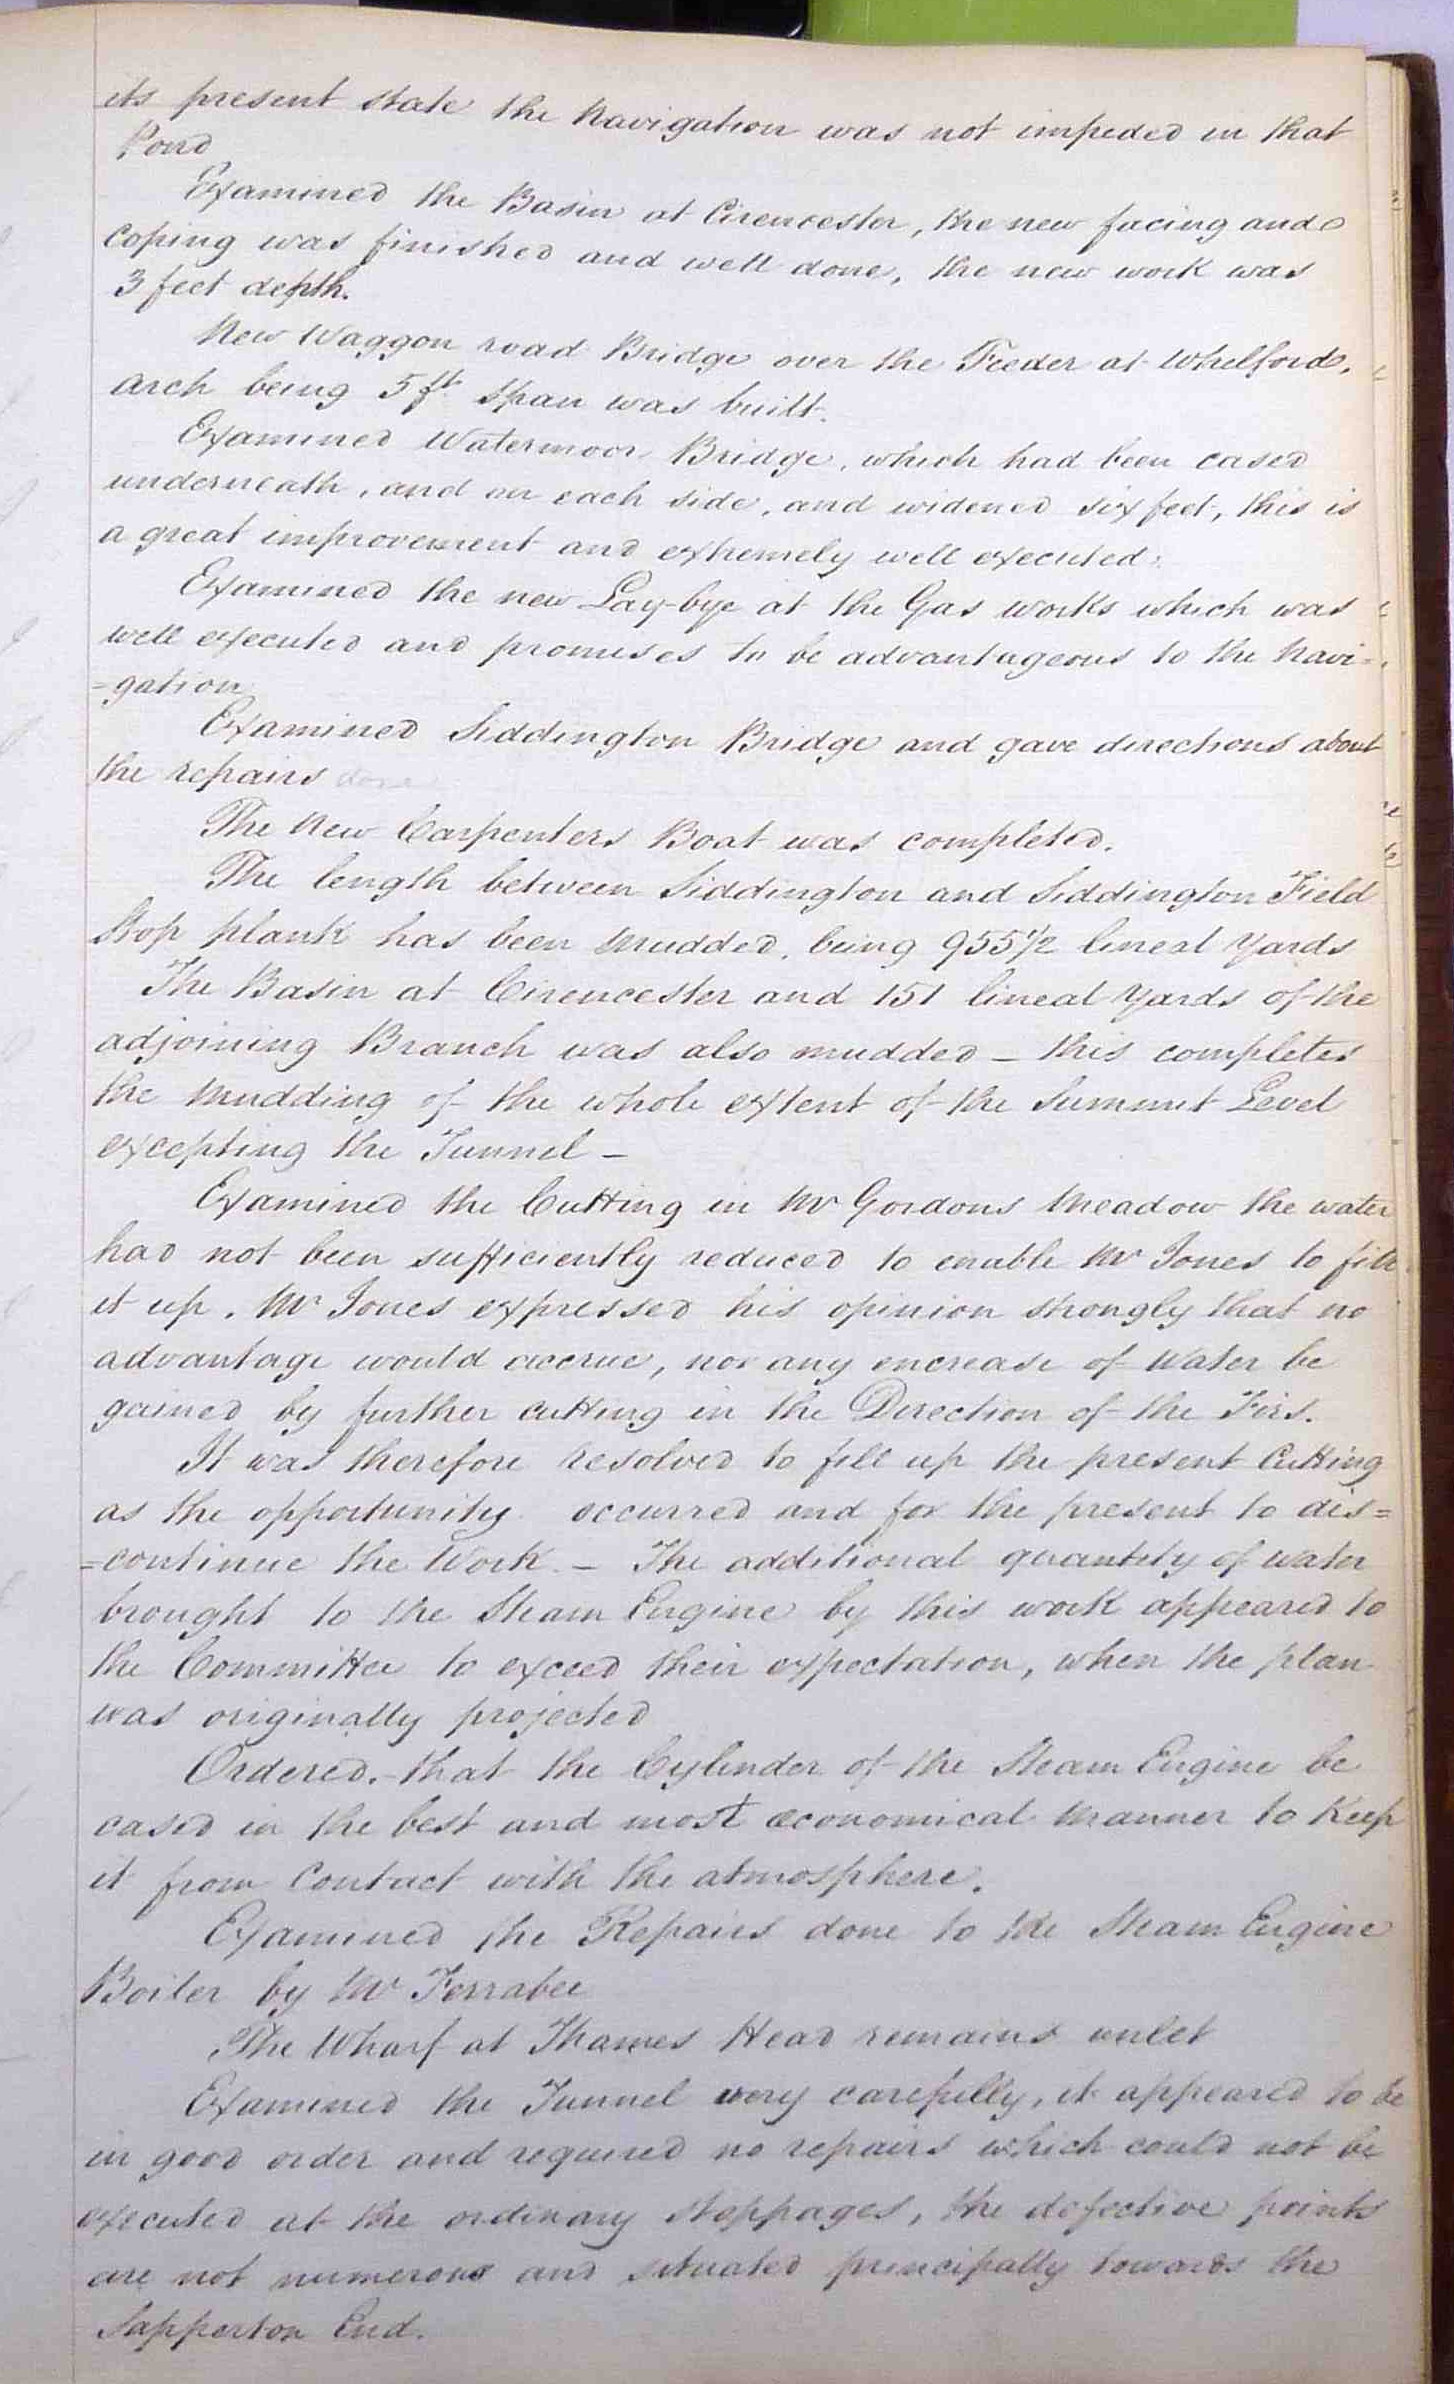 its present state the Navigation was not impeded in that
Pond
Examined the Basin at Cirencester, the new facing and
coping was finished and well done, the new work was
3 feet depth.
New Waggon road Bridge over the Feeder at Whelford,
arch being 5 ft span was built.
Examined Watermoor Bridge, which had been cased
underneath, and on each side, and widened six feet, this is
a great improvement and extremely well executed.
Examined the new Lay-bye at the Gas works which was
well executed and promises to be advantageous to the Navi=
=gation
Examined Siddington Bridge and gave directions about
the repairs done
The New Carpenters Boat was completed.
The length between Siddington and Siddington Field
Stop plank has been mudded, being 955 1/2 lineal Yards
The Basin at Cirencester and 151 lineal Yards of the
adjoining Branch was also mudded - this completes
the Mudding of the whole extent of the Summit Level
excepting the Tunnel -
Examined the Cutting in Mr Gordons Meadow the water
had not been sufficiently reduced to enable Mr Jones to fill
it up. Mr Jones expressed his opinion strongly that no
advantage would accrue, nor any increase of Water be
gained by further cutting in the Direction of the Firs.
It was therefore resolved to fill up the present Cutting
as the opportunity occurred and for the present to dis=
=continue the Work. - The additional quantity of water
brought to the Steam Engine by this work appeared to
the Committee to exceed their expectation, when the plan
was originally projected
Ordered. - that the Cylinder of the Steam Engine be
cased in the best and most economical Manner to Keep
it from Contact with the atmosphere.
Examined the Repairs done to the Steam Engine
Boiler by Mr Ferrabee
The Wharf at Thames Head remains unlet
Examined the Tunnel very carefully, it appeared to be
in good order and required no repairs which could not be
executed at the ordinary stoppages, the defective points
are not numerous and situated principally towards the
Sapperton End.